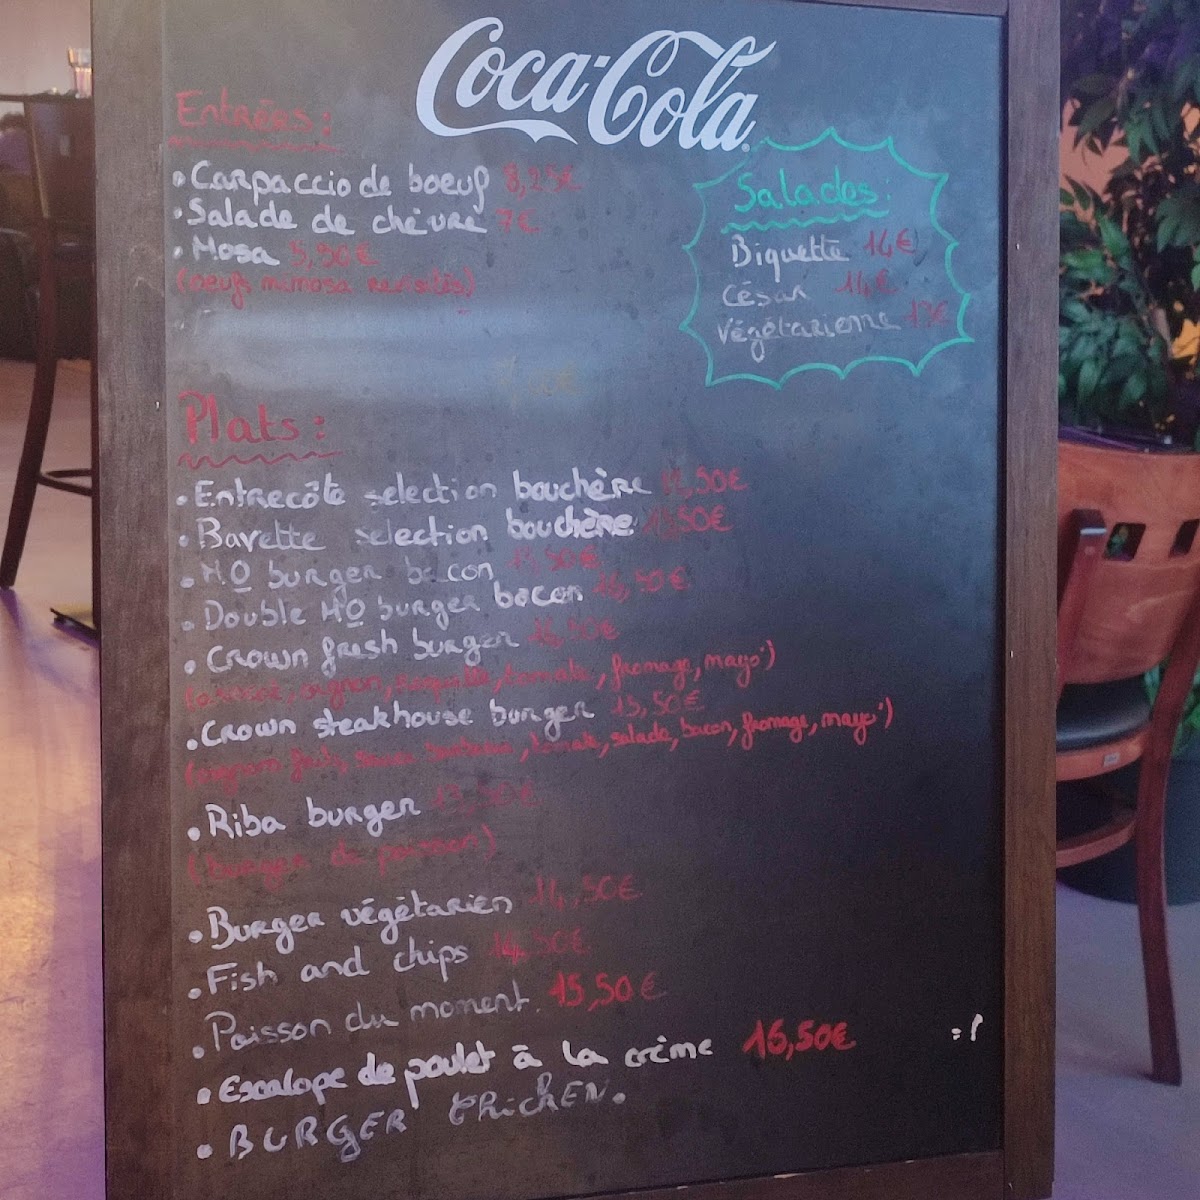 Coca-Cola
Entrées :
• Carpaccio de boeuf 8,25€
• Salade de chèvre 7€
• Mosa 5,90€
(oeufs mimosa revisités)
Salades :
Biquette 14€
César 14€
Végétarienne 13€
Plats :
• Entrecôte selection bouchère ,50€
• Bavette selection bouchère 15,50€
• MO burger bacon ,50€
• Double MO burger bacon 16,50€
• Crown fresh burger ,50€
oignon, roquette, tomate, fromage, mayo')
• Crown steakhouse burger 15,50€
(oignon frits, sauce barbecue, tomate, salade, bacon, fromage, mayo')
• Riba burger ,50€
(burger de poisson)
• Burger végétarien 14,50€
• Fish and chips 14,50€
• Poisson du moment. 15,50€
• Escalope de poulet à la crème 16,50€
• BURGER CHICKEN.